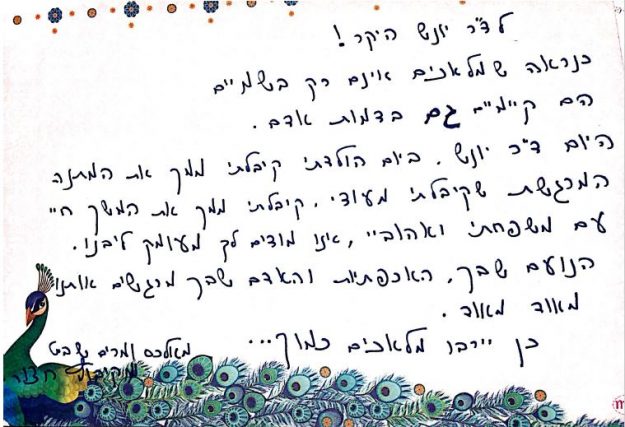 לד"ר יונש היקר!
כנראה שמלאכים אינם רק בשמיים
הם קיימים גם בדמות אדם.
היום ד"ר יונש, ביום הולדתי קיבלתי ממך את המתנה
המרגשת שקיבלתי מעודי. קיבלתי ממך את המשך חיי
עם משפחתי ואהוביי, אינו מודים לך מעומק ליבנו.
הנועם שבך, האכפתיות והאדם שבך מרגשים אותנו
מאוד מאוד.
כן יירבו מלאכים כמוך...
ומרים שבט